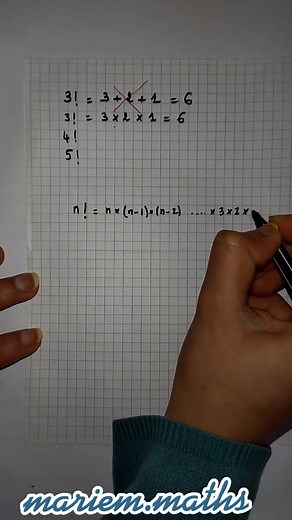 3! = 3 + 2 + 1 = 6
3! = 3 × 2 × 1 = 6
4!
5!
n! = n × (n-1) × (n-2) .... × 3 × 2 ×
mariem.maths